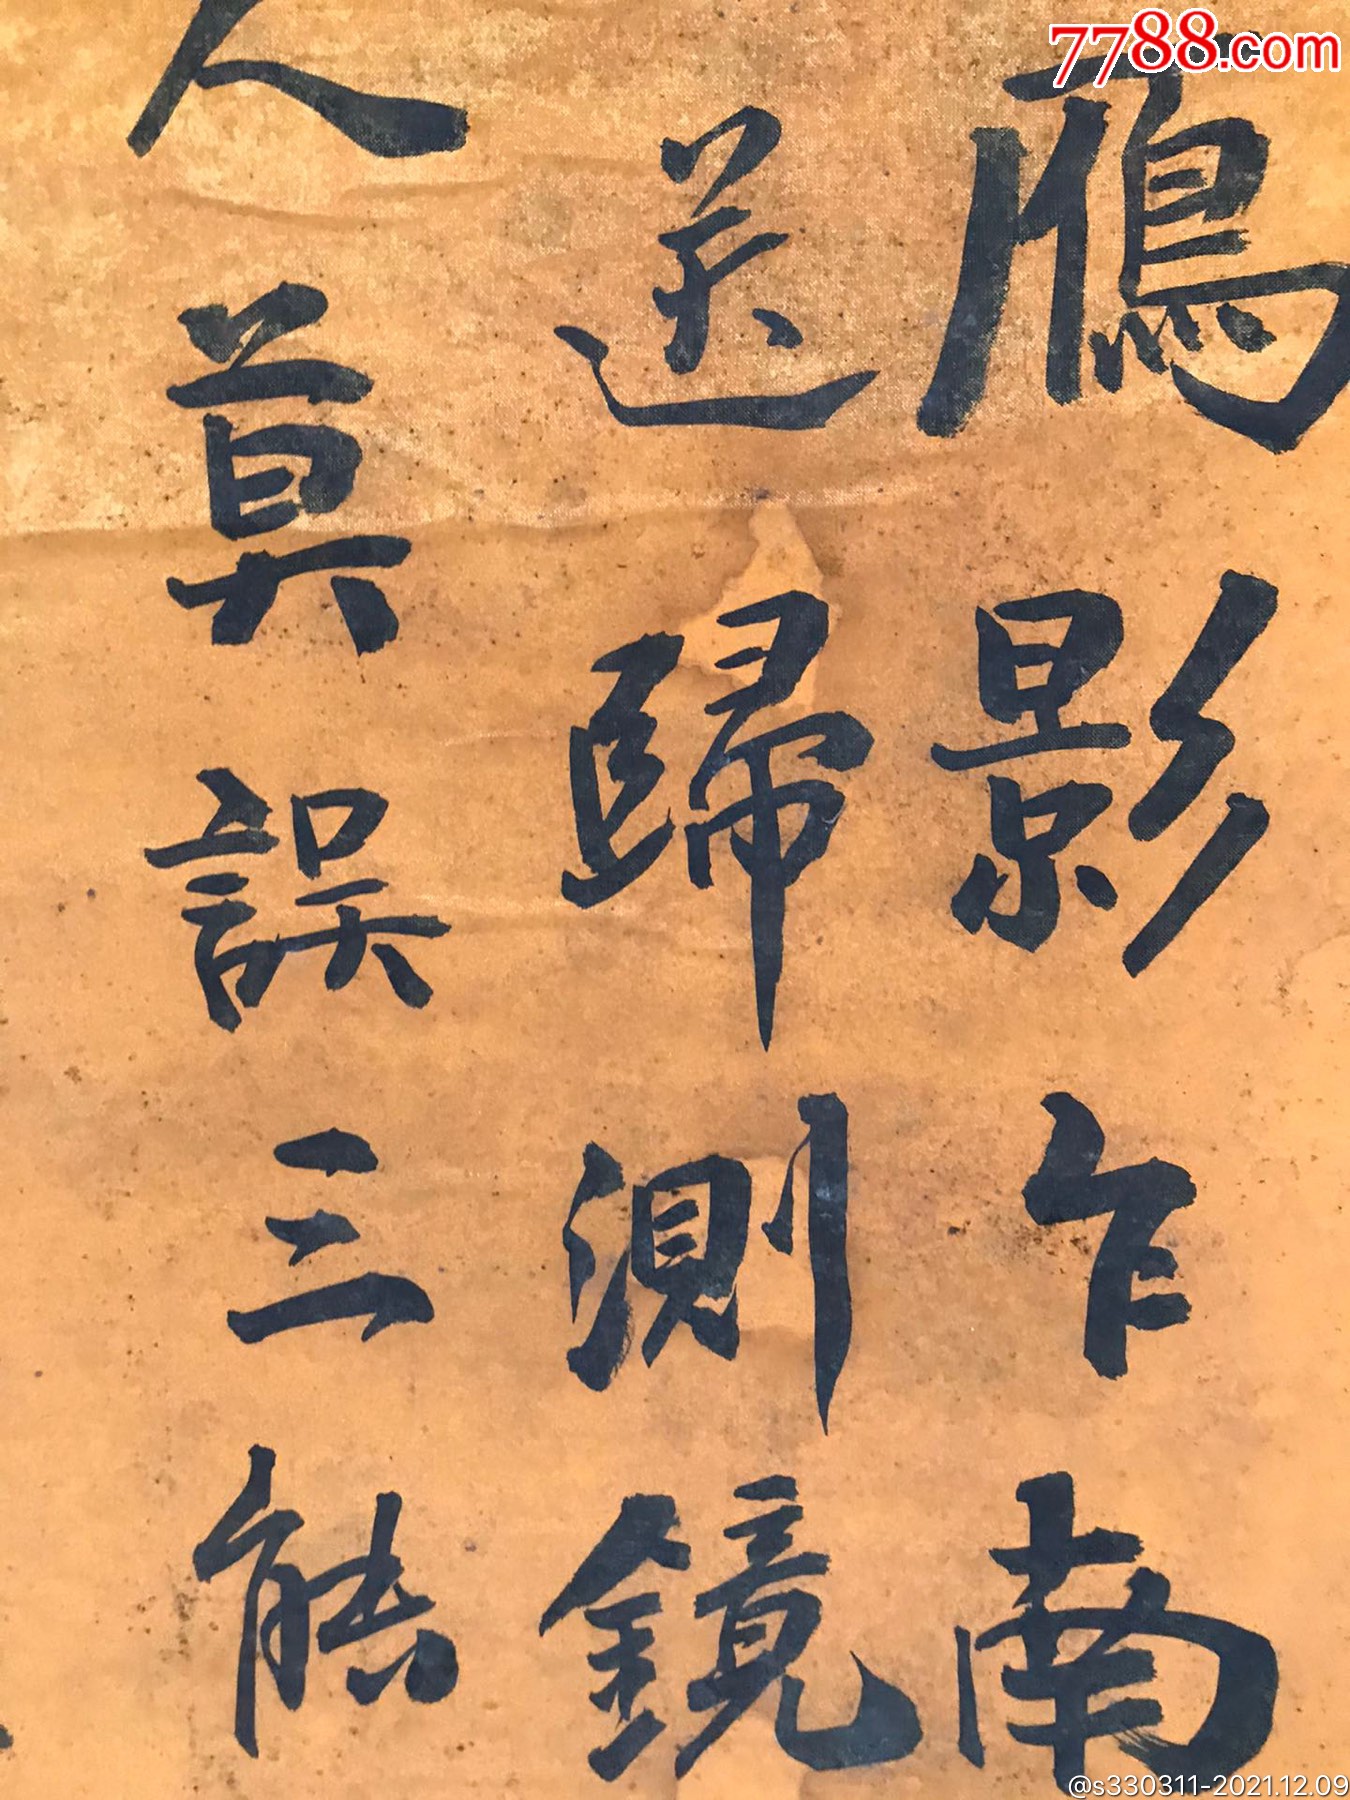 7788.com
鴈影乍南
送歸測鏡
人莫誤三能
@s330311-2021.12.09